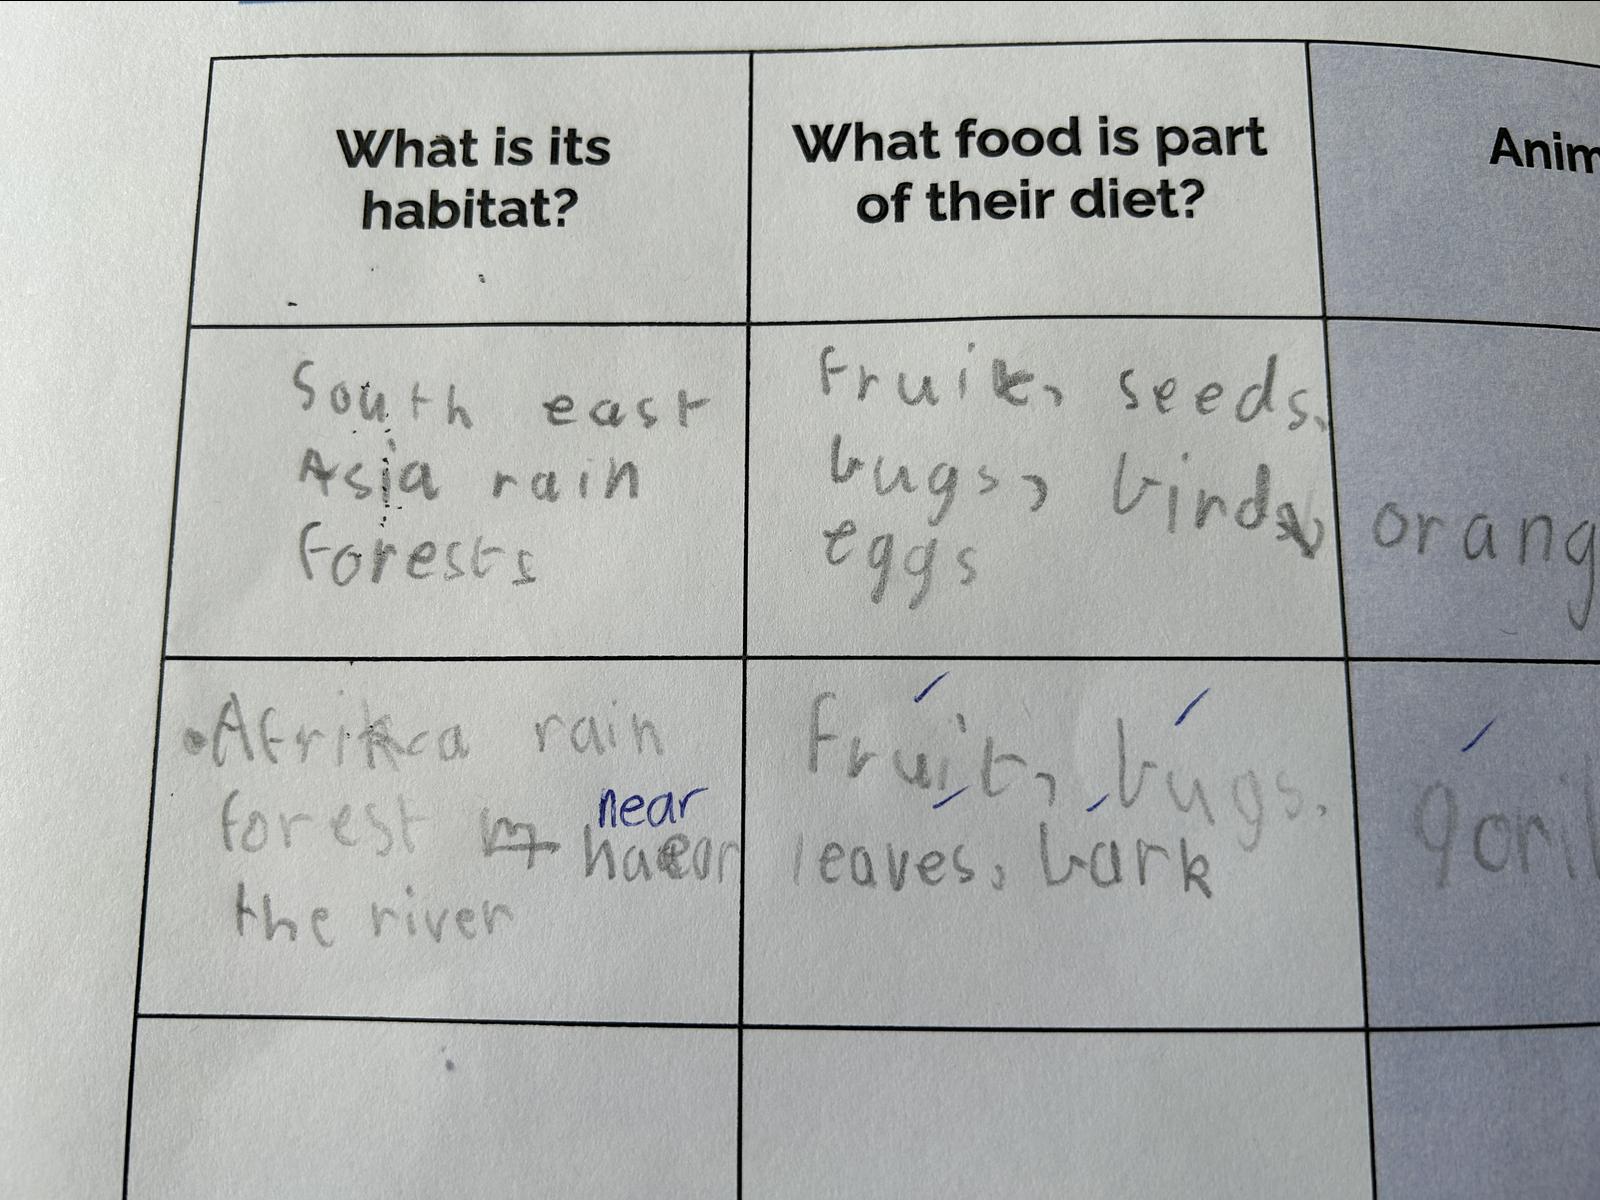 What is its
habitat?
What food is part
of their diet?
Anim
South east
Asia rain
forests
Fruit, seeds,
bugs, birds
eggs
orang
Afrikca rain
forest near
the river
Fruit, bugs,
leaves, bark
goril